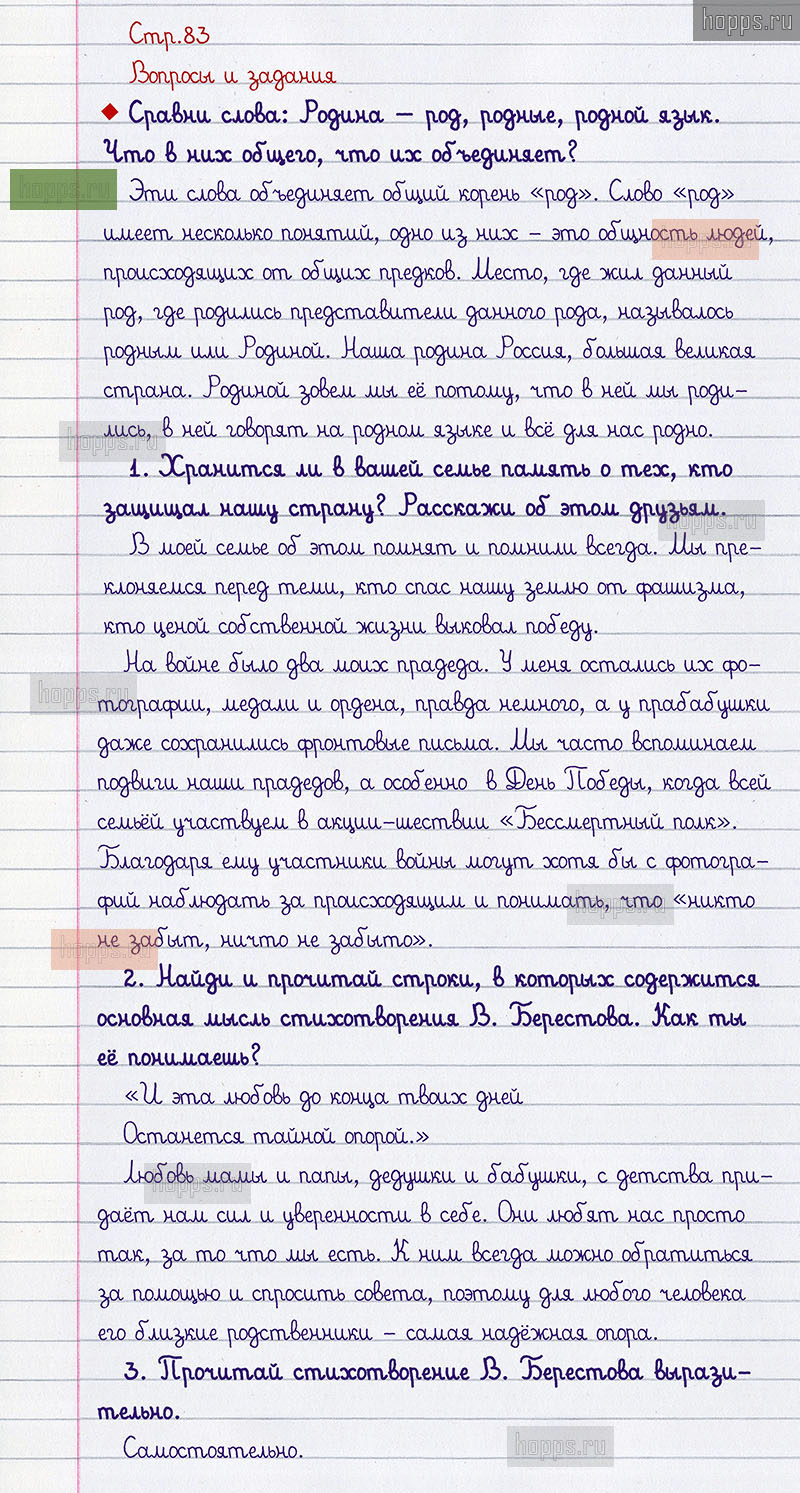 hopps.ru
Стр.83
Вопросы и задания
Сравни слова: Родина – род, родные, родной язык.
Что в них общего, что их объединяет?
hopps.ru
Эти слова объединяет общий корень «род». Слово «род»
имеет несколько понятий, одно из них – это общность людей,
hopps.ru
происходящих от общих предков. Место, где жил данный
род, где родились представители данного рода, называлось
родным или Родиной. Наша родина Россия, большая великая
страна. Родиной зовем мы её потому, что в ней мы роди-
лись, в ней говорят на родном языке и всё для нас родно.
hopps.ru
1. Хранится ли в вашей семье память о тех, кто
защищал нашу страну? Расскажи об этом друзьям.
hopps.ru
В моей семье об этом помнят и помнили всегда. Мы пре-
клоняемся перед теми, кто спас нашу землю от фашизма,
кто ценой собственной жизни выковал победу.
На войне было два моих прадеда. У меня остались их фо-
hopps.ru
тографии, медали и ордена, правда немного, а у прабабушки
даже сохранились фронтовые письма. Мы часто вспоминаем
подвиги наши прадедов, а особенно в День Победы, когда всей
семьёй участвуем в акции-шествии «Бессмертный полк».
Благодаря ему участники войны могут хотя бы с фотогра-
фий наблюдать за происходящим и понимать, что «никто
hopps.ru
не забыт, ничто не забыто».
hopps.ru
2. Найди и прочитай строки, в которых содержится
основная мысль стихотворения В. Берестова. Как ты
её понимаешь?
«И эта любовь до конца твоих дней
Останется тайной опорой.»
Любовь мамы и папы, дедушки и бабушки, с детства при-
hopps.ru
даёт нам сил и уверенности в себе. Они любят нас просто
так, за то что мы есть. К ним всегда можно обратиться
за помощью и спросить совета, поэтому для любого человека
его близкие родственники – самая надёжная опора.
3. Прочитай стихотворение В. Берестова вырази-
тельно.
Самостоятельно.
hopps.ru